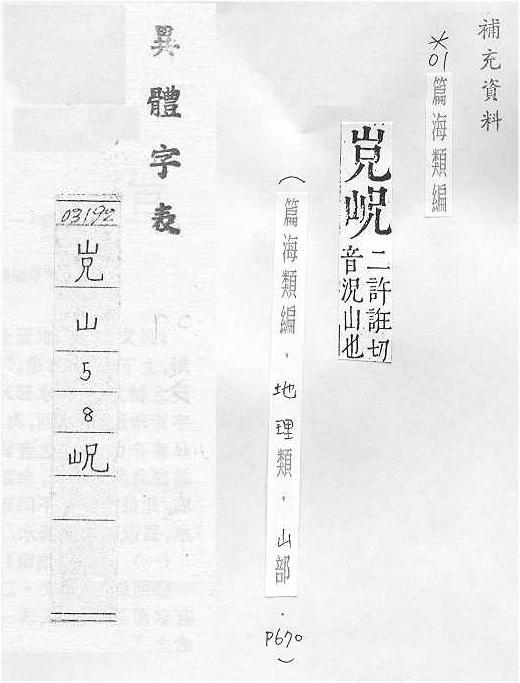 補充資料
*01篇海類編
岲
二許誑切
音況山也
(篇海類編．地理類．山部．P670)
異體字表
03192
山
5
8
岲